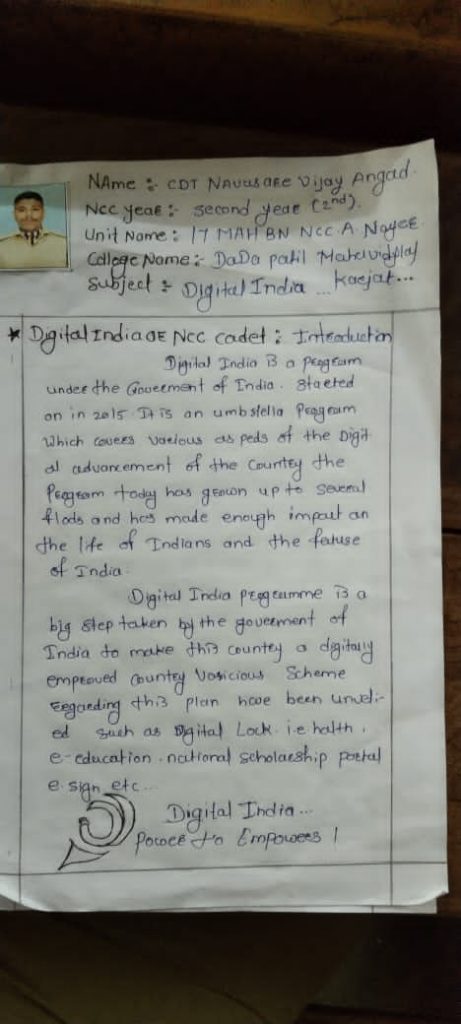 NAme :- CDT NAVUSARE Vijay Angad.
Ncc year :- second year (2nd).
Unit Name : 17 MAH BN NCC A Nagar
College Name :- DaDa patil Mahavidylay
Karjat...
Subject :- Digital India ...
* Digital India OR Ncc cadet : Introduction
Digital India is a program
under the Goverment of India. Started
on in 2015 It is an umbstella Program
which covers various as peds of the Digit
al advancement of the country the
Program today has grown up to several
flods and has made enough impaut on
the life of Indians and the feature
of India.
Digital India programme is a
big step taken by the goverment of
India to make this country a digitaly
emproved country Varicious Scheme
regarding this plan have been unveli-
ed such as Digital Lock. i.e halth,
e-education. national scholarship portal
e sign etc...
Digital India...
Power to Empowers !